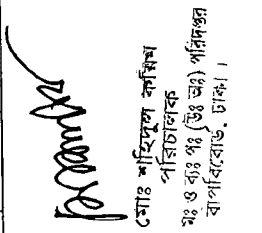 মোঃ শহিদুল করিম
পরিচালক
গঃ ও ব্যঃ পঃ (উঃ অঃ) পরিদপ্তর
বাপবিবোর্ড, ঢাকা।